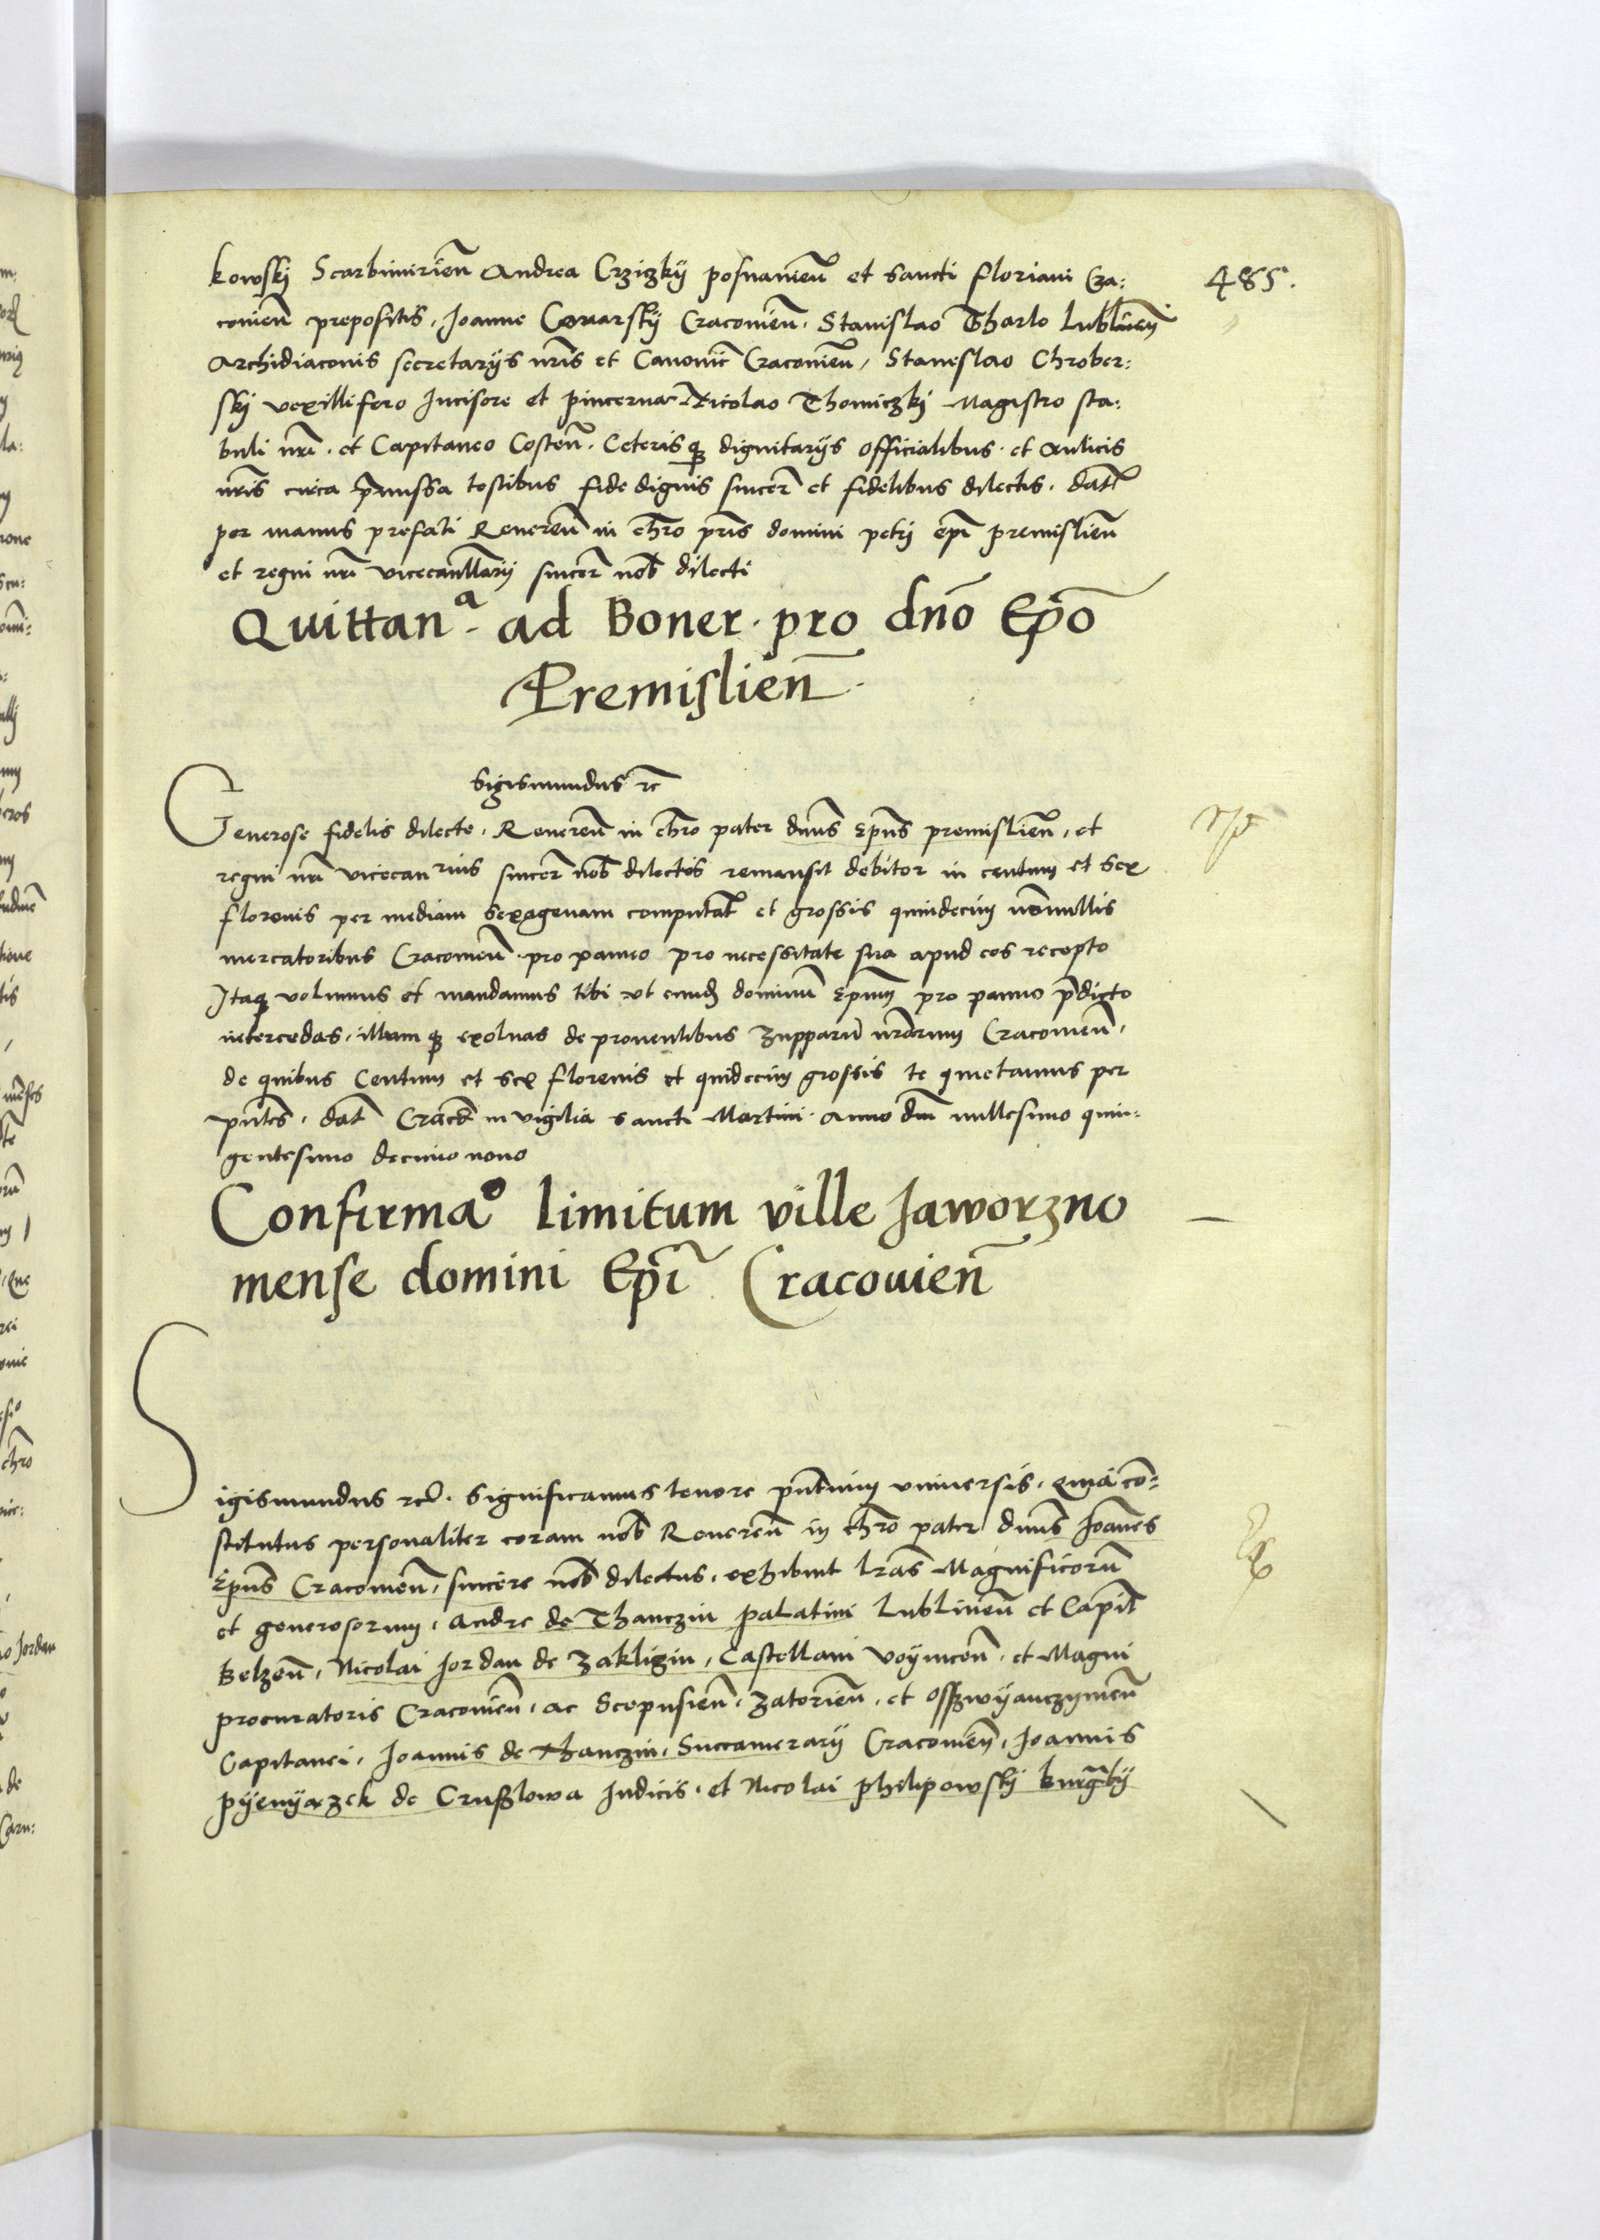 485.
kowskij Scarbimirień Andrea Crziczkij posnanień et sancti floriani Cra:
couień prepositis, Joanne Conarskij Cracouień. Stanislao Tharlo Lublineñ
Archidiaconis secretarijs nr̃is et Canonic̃ Cracouień, Staneslao Chrober:
skj vexillifero Incisore et pincerna Nicolao Thomiczkj Magistro sta:
buli nr̃i. et Capitaneo Costeñ. Ceterisq3 dignitarijs officialibus. et Aulicis
nr̃is circa p̃missa testibus fide dignis sincer̃ et fidelibus dilectis. dat̃
per manus prefati Reuereñ in chr̃o pr̃is domini petrj ep̃i premislień
et regni nr̃i vicecancellarij sincer̃ nob̃ dilecti
Quittanᵃ. ad Boner. pro dño Ep̃o
Premislień.
Sigismundus rc̃
Generose fidelis dilecte. Reuereñ in chr̃o pater dñus Ep̃us premislień, et
regni nr̃i vicecanrius sincer̃ nob̃ dilectus remansit debitor in centum et sex
florenis per mediam sexagenam computat̃ et grossis quindecim nõnullis
mercatoribus Cracouień. pro panno pro necessitate sua apud eos recepto
Itaq3 volumus et mandamus tibi vt eund̃ dominũ Ep̃um pro panno p̃dicto
intercedas, illamq3 exoluas de prouentibus zupparũ nr̃arum Cracouień,
de quibus Centum et sex florenis et quidecim grossis te quietamus per
pñtes. dat̃ Crac̃ in vigilia sancti Martini. anno dñi millesimo quin-
gentesimo decimo nono
Confirmaᵒ limitum ville Jaworzno
mense domini Ep̃i Cracouień
Sigismundus rc̃. Significamus tenore pñtium vniuersis. quia cõ-
stitutus personaliter coram nob̃ Reuereñ in chr̃o pater dñus Joañes
Ep̃us Cracouień, sincere nob̃ dilectus. exhibuit lr̃as Magnificorũ
et generosorum, Andre de Thanczin palatini Lublineñ et Capit̃
Belzeñ, Nicolai Jordan de Zakliczin, Castellani Voynicen̄. et Magni
procuratoris Cracouień. ac Scepusień. Zatorień. et Osswyanczymeñ
Capitanei. Joannis de Thanczin, Succamerarij Cracouień, Joannis
Pyenyazek de Crusslowa Iudicis. et Nicolai philipowskij burg̃bij